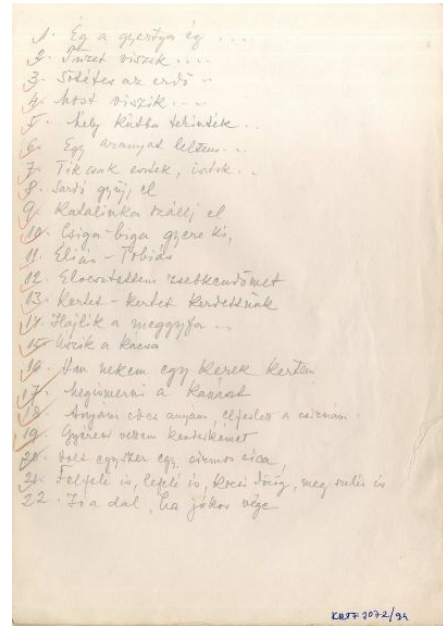 1. Ég a gyertya ég ....
2. Tüzet viszek ....
3. Sötétes az erdő ..
4. Most viszik ....
5. Mely kútba tekinték ..
6. Egy aranyat leltem ...
7. Tik csak esztek, isztok ..
8. Sardó gyűj, el
9. Katalinka szállj el
10. Csiga-biga gyere ki,
11. Éliás - Tóbiás
12. Elvesztettem zsebkendőmet
13. Kertet - kertet kerteltünk
14. Hajlik a meggyfa ...
15. Úszik a kácsa
16. Van nekem egy kerek kertem
17. Megismerni a kanászt
18. Anyám édes anyám, elfeslett a csizmám
19. Gyeren vettem kenderkémet
20. Volt egyszer egy cirmos cica,
21. Felfelé is, lefelé is, kocsi dörög, meg
22. Jó a dal, ha jókor vége
KUT7 7072/94